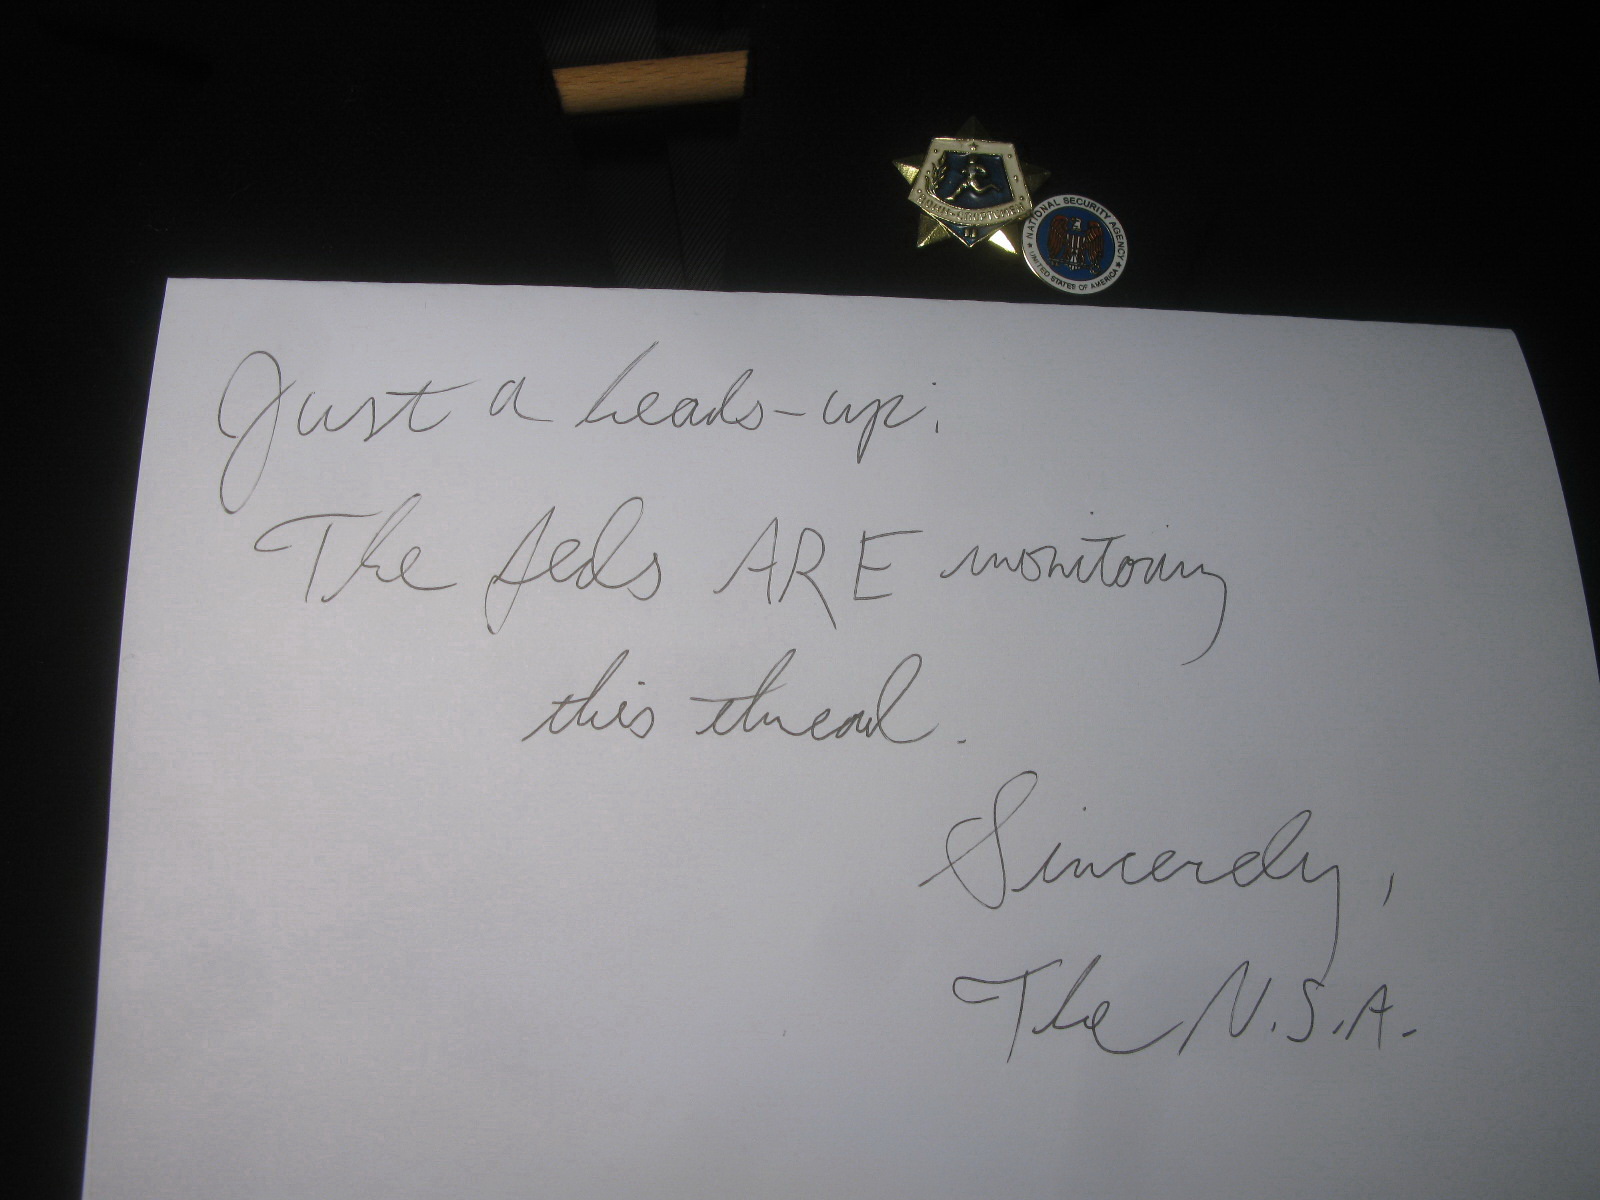 NATIONAL SECURITY AGENCY
UNITED STATES OF AMERICA
Just a heads-up:
The feds ARE monitoring
this thread.
Sincerely,
The N.S.A.